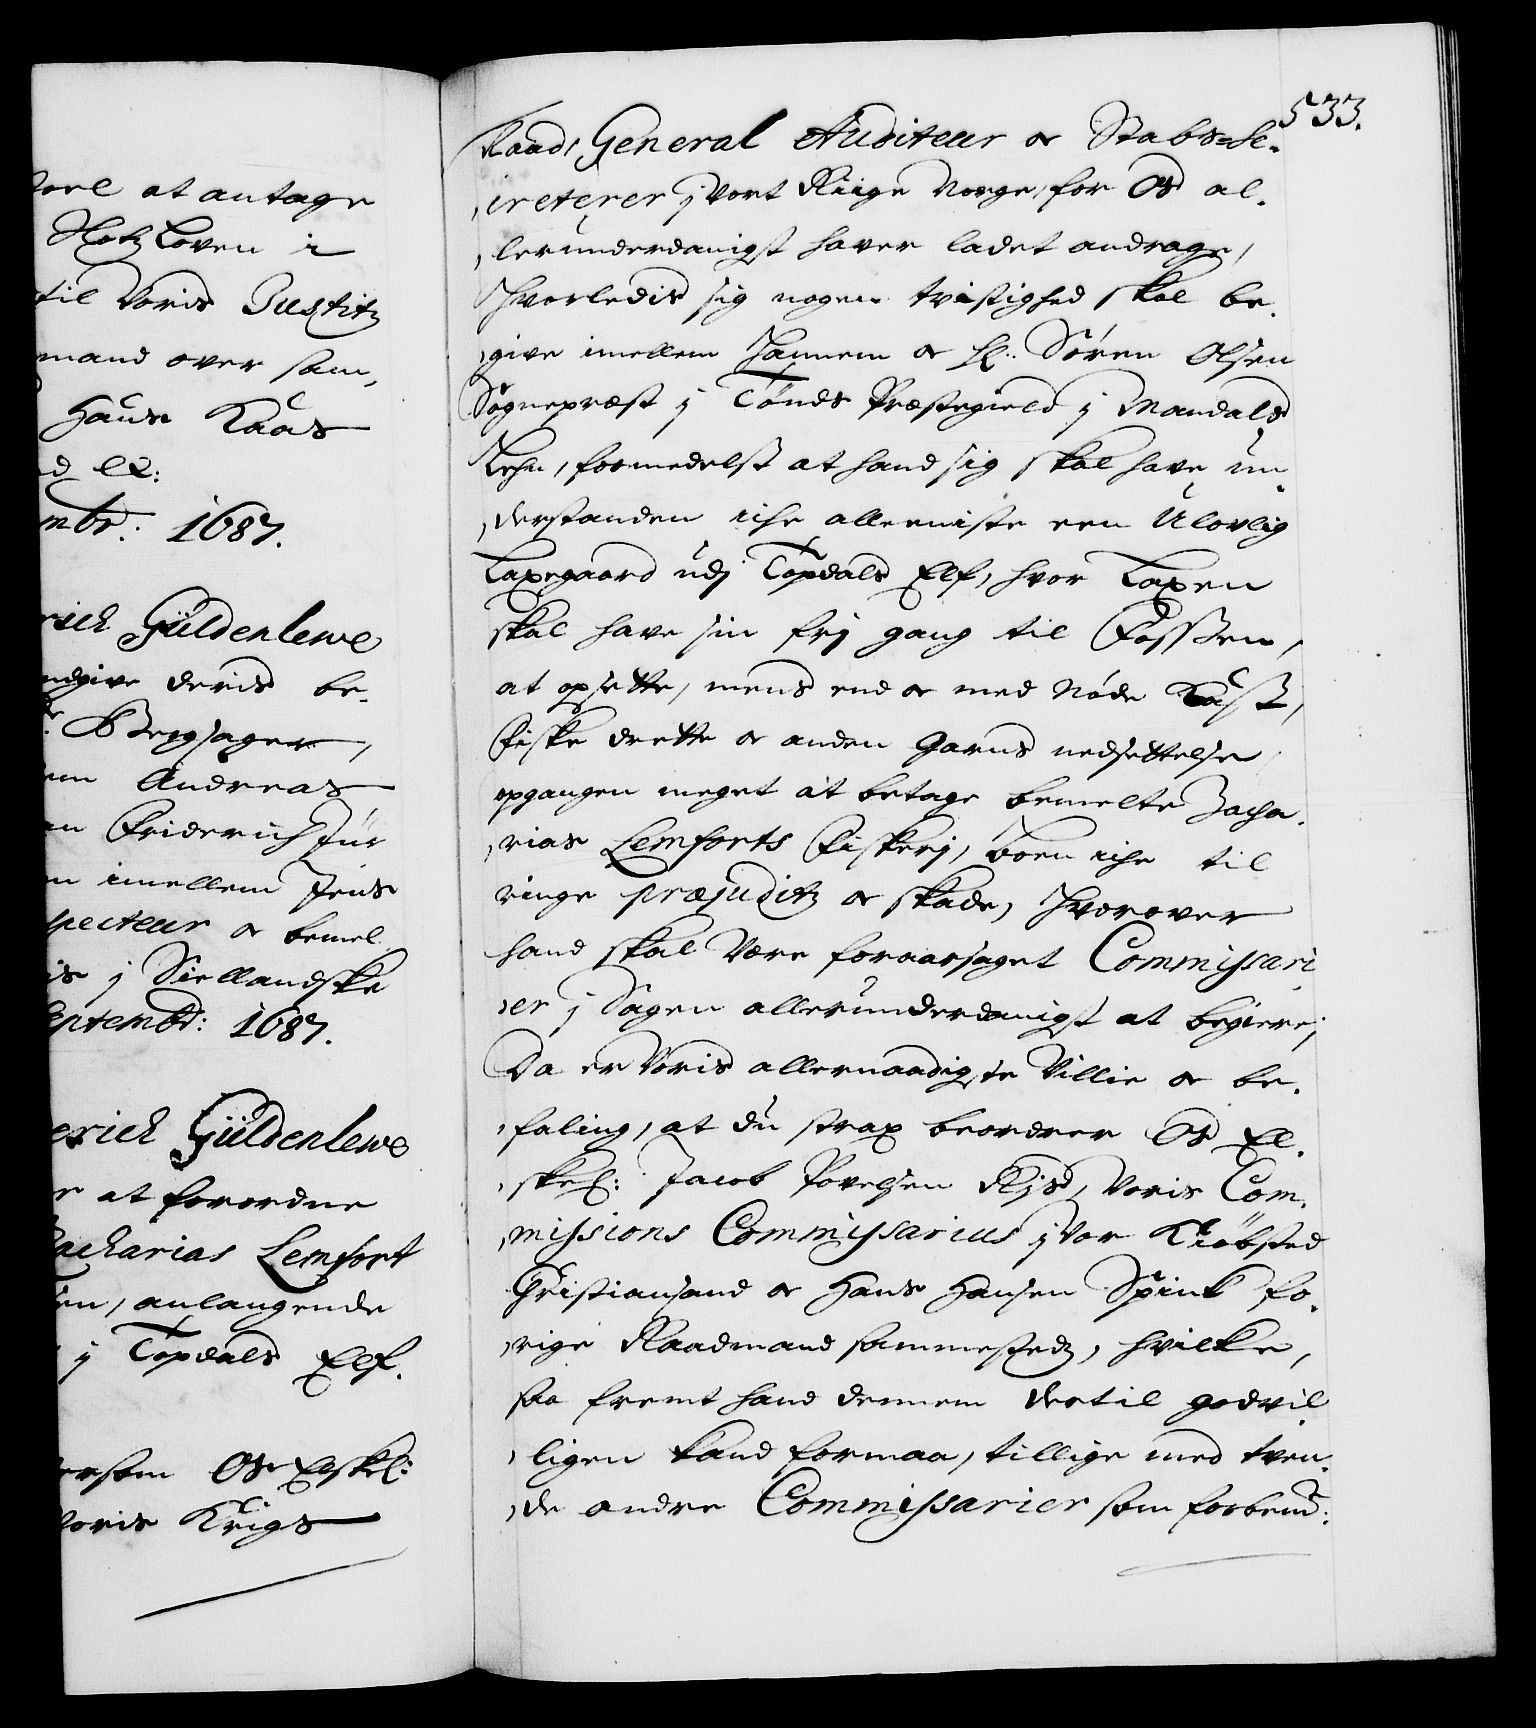 vel at antage
Slotz Loven i
til Voris Justitz
mand over sam,
Hans Kaas
ed etc:
mbr: 1687.
rich Güldenlewe
udgive deris be-
Bergsager,
Andreas
Friderich Jür
imellem Jens
pecteur oc bemel
is j Siellandske
Septembr: 1687.
erich Güldenlewe
at forordne
Zacharias Lemfort
sen, anlangende
j Topdals Elf.
ersom Os Elskel:
Voris Krigs
533.
Raad, General Auditeur oc Stabs-Se-
creterer j Vort Riige Norge, for Os al-
lerunderdanigst haver ladet andrage,
Hvorledis sig nogen tvistighed skal be-
give imellem Hannem oc Hr: Sören Olsen
Sognepræst j Tönds Præstegield j Mandals
Lehn, formedelst at hand sig skal have un-
derstanden iche alleeniste een Ulovlig
Laxegaard udj Topdals Elf, hvor Laxen
skal have sin frj gang til Fossen,
at opsette, mens end oc med Nöde Kast,
Fiske drette oc anden Garns nedsettelse
opgangen meget at betage bemelte Zacha-
rias Lemforts Fiskerj, hoen iche til
ringe præjuditz oc skade, Hvorover
hand skal være foraarsaget Commissari
er j Sagen allerunderdanigst at begiere;
Da er Voris allernaadigste Villie oc be-
faling, at du strax beordrer Os El-
skel: Jacob Povelsen Rÿs, Voris Com-
missions Commissarius j Vor Kiöbsted
Christiansand oc Hans Hansen Spink fo-
rige Raadmand sammestedz, hvilke,
saa fremt hand dennem dertil godvil
ligen kand formaa, tillige med tven-
de andre Commissarier som forbemt: